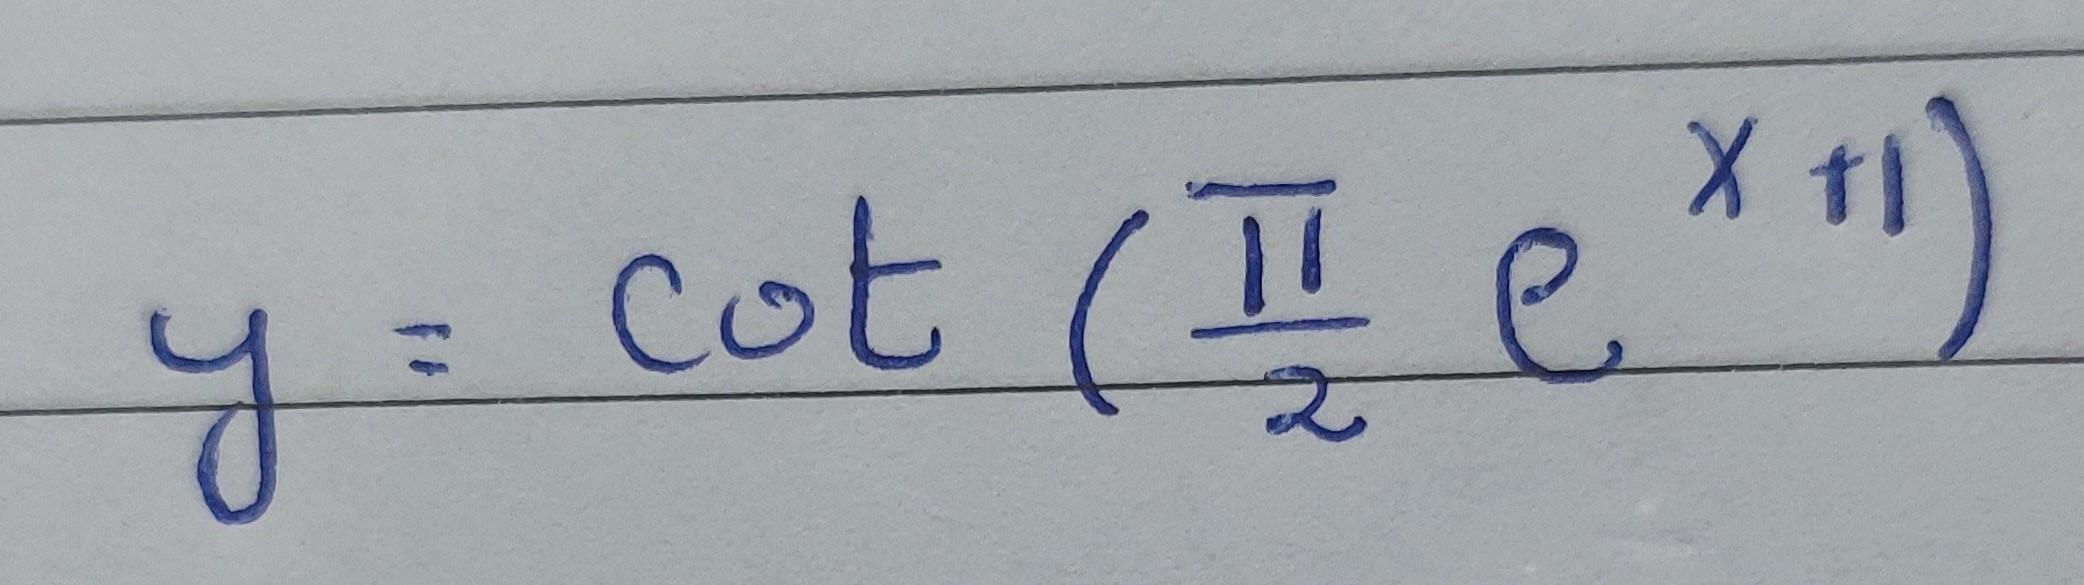 y = cot (π/2 e^(x+1))